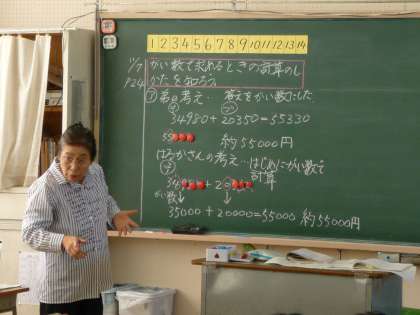 1 2 3 4 5 6 7 8 9 10 11 12 13 14
11/7
がい数で求めるときの計算のし
P24
かたを知ろう。
答えをがい数にした
34980+20350=55330
約55000円
さんの考え…はじめにがい数で
計算
がい数
35000+20000=55000 約55000円